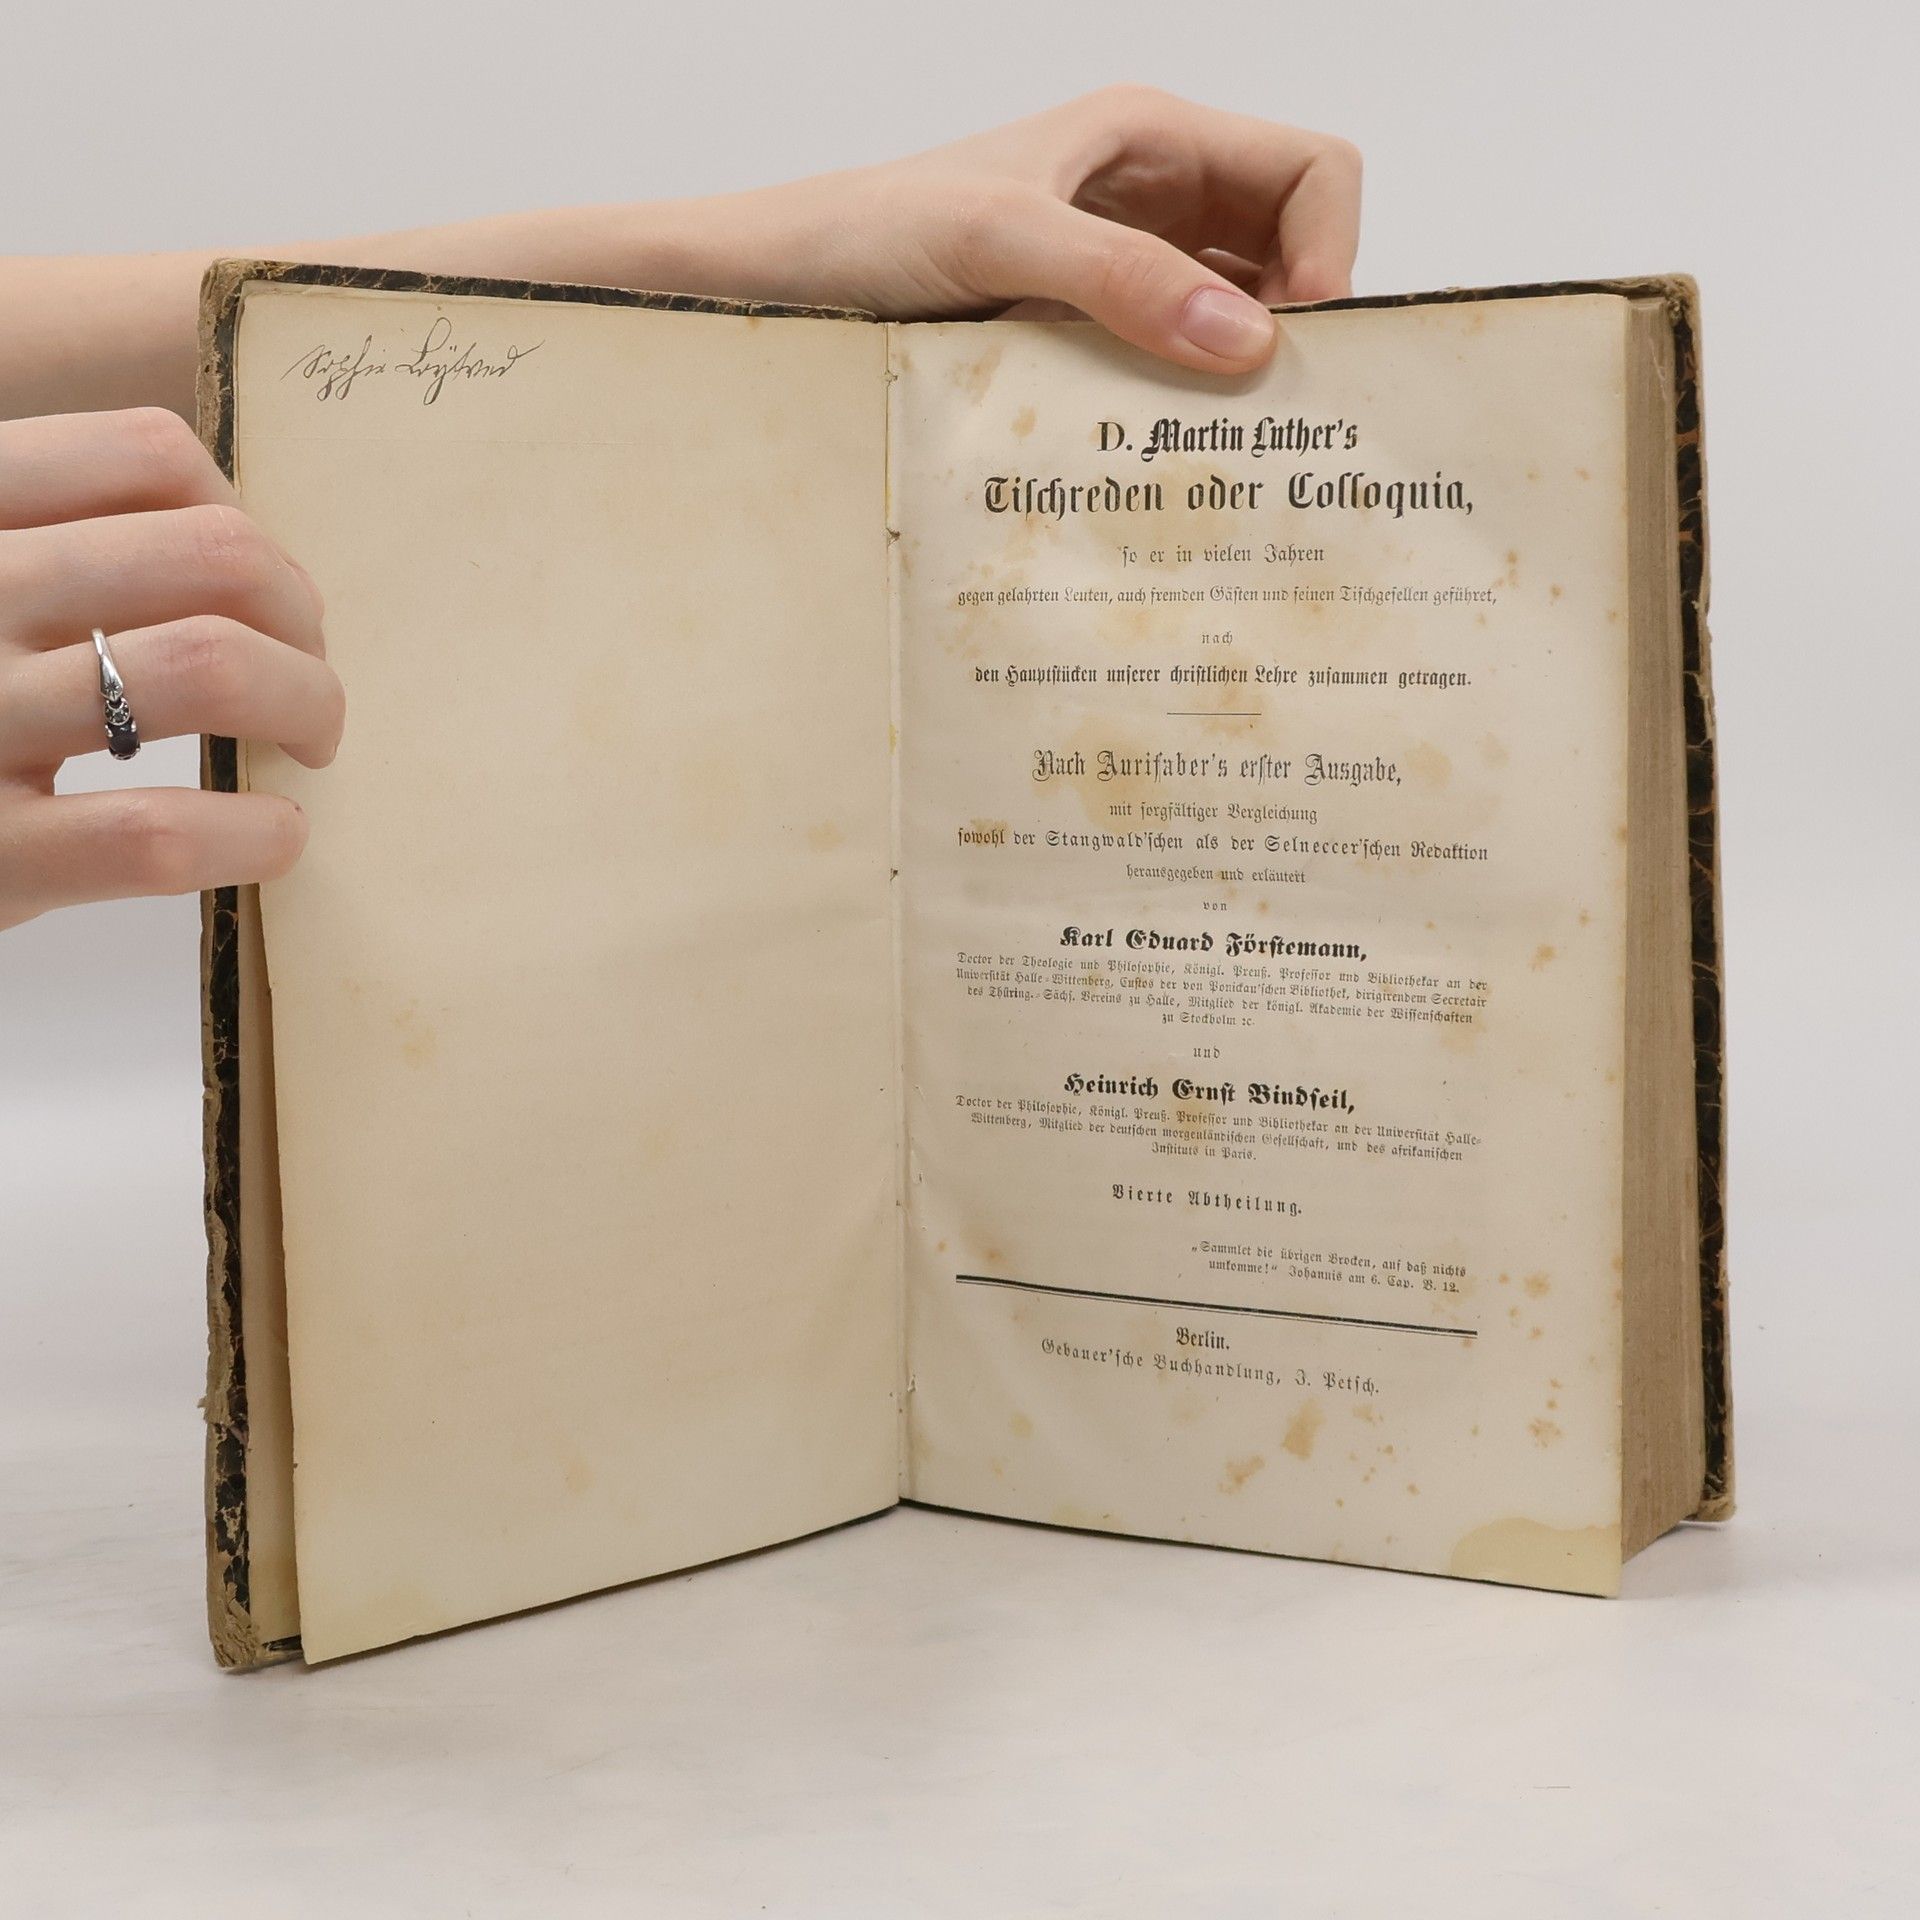 Sophie Löytved
D. Martin Luther's
Tiſchreden oder Colloquia,
ſo er in vielen Jahren
gegen gelahrten Leuten, auch fremden Gäſten und ſeinen Tiſchgeſellen geführet,
nach
den Hauptſtücken unſerer chriſtlichen Lehre zuſammen getragen.
Nach Aurifaber's erſter Ausgabe,
mit ſorgfältiger Vergleichung
ſowohl der Stangwald'ſchen als der Selneccer'ſchen Redaktion
herausgegeben und erläutert
von
Karl Eduard Förſtemann,
Doctor der Theologie und Philoſophie, Königl. Preuß. Profeſſor und Bibliothekar an der
Univerſität Halle-Wittenberg, Cuſtos der von Ponickau'ſchen Bibliothek, dirigirendem Secretair
des Thüring.-Sächſ. Vereins zu Halle, Mitglied der königl. Akademie der Wiſſenſchaften
zu Stockholm ꝛc.
und
Heinrich Ernſt Bindſeil,
Doctor der Philoſophie, Königl. Preuß. Profeſſor und Bibliothekar an der Univerſität Halle-
Wittenberg, Mitglied der deutſchen morgenländiſchen Geſellſchaft, und des afrikaniſchen
Inſtituts in Paris.
Vierte Abtheilung.
„Sammlet die übrigen Brocken, auf daß nichts
umkomme!“ Johannis am 6. Cap. V. 12.
Berlin.
Gebauer'ſche Buchhandlung, J. Petſch.